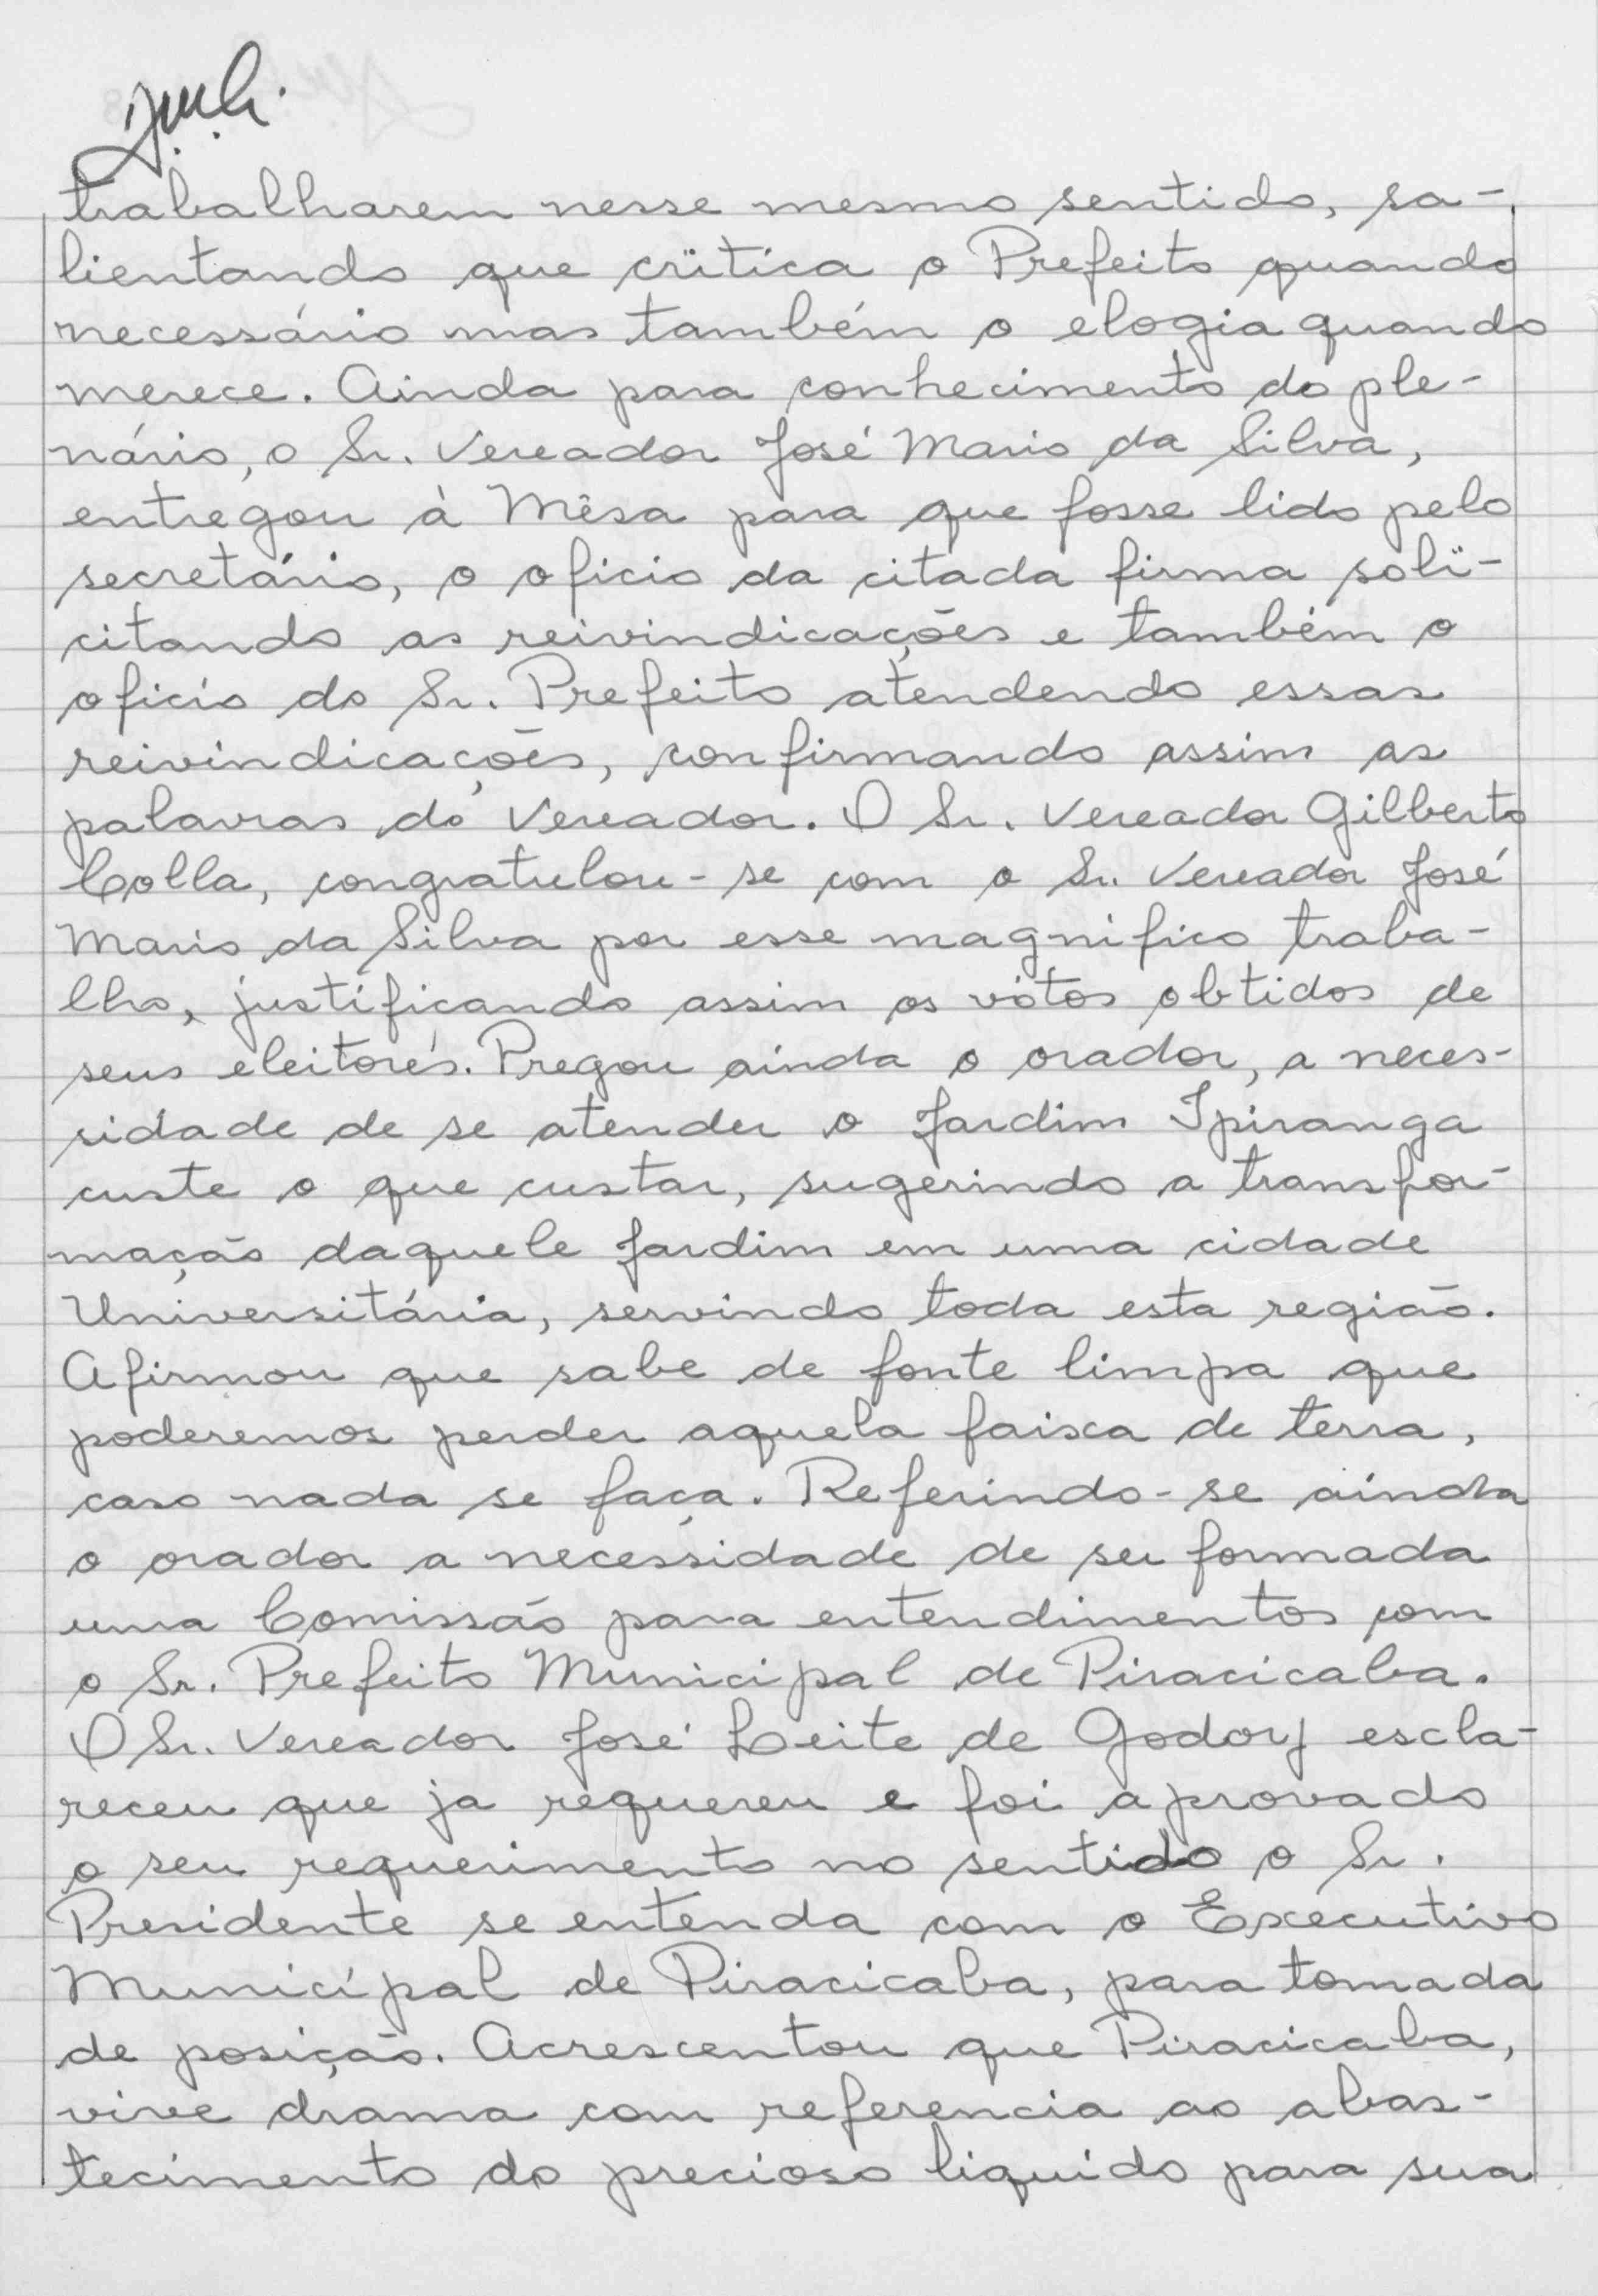 trabalharem nesse mesmo sentido, sa-
lientando que critica o Prefeito quando
necessário mas também o elogia quando
merece. Ainda para conhecimento do ple-
nário, o Sr. Vereador José Mario da Silva,
entregou à Mêsa para que fosse lido pelo
secretário, o oficio da citada firma soli-
citando as reivindicações e também o
oficio do Sr. Prefeito atendendo essas
reivindicações, confirmando assim as
palavras do Vereador. O Sr. Vereador Gilberto
Colla, congratulou-se com o Sr. Vereador José
Mario da Silva por esse magnifico traba-
lho, justificando assim os vótos obtidos de
seus eleitores. Pregou ainda o orador, a neces-
sidade de se atender o Jardim Ipiranga
custe o que custar, sugerindo a transfor-
mação daquele Jardim em uma cidade
Universitária, servindo toda esta região.
Afirmou que sabe de fonte limpa que
poderemos perder aquela faixa de terra,
caso nada se faça. Referindo-se ainda
o orador a necessidade de ser formada
uma Comissão para entendimentos com
o Sr. Prefeito Municipal de Piracicaba.
O Sr. Vereador José Leite de Godoy escla-
receu que ja requereu e foi aprovado
o seu requerimento no sentido o Sr.
Presidente se entenda com o Executivo
Municipal de Piracicaba, para tomada
de posição. Acrescentou que Piracicaba,
vive drama com referencia ao abas-
tecimento do precioso liquido para sua